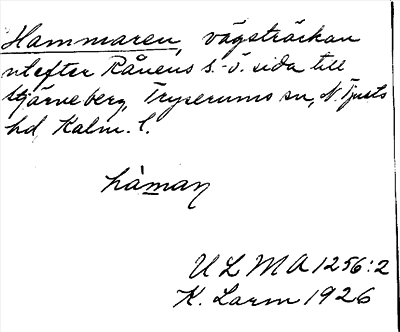 Hammaren, vägsträckan
utefter Rånens s.-ö. sida till
Stjärneberg, Tryserums sn, N. Tjusts
hd, Kalm. l.
hàman
ULMA 1256:2
K. Larm 1926